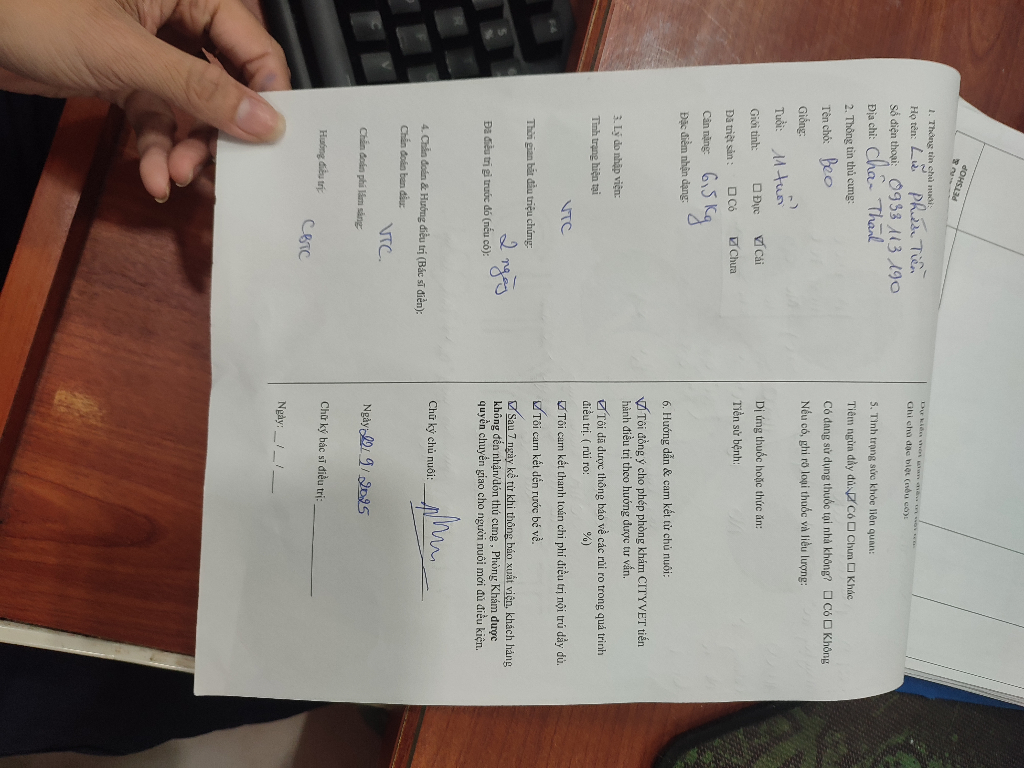 1. Thông tin chủ nuôi:
Họ tên: Lưu Phước Tiến
Số điện thoại: 0933 113 190
Địa chỉ: Chân Thành
2. Thông tin thú cưng:
Tên chó: Beo
Giống:
Tuổi: 11 tuổi
Giới tính: ☐ Đực ☑ Cái
Đã triệt sản : ☐ Có ☑ Chưa
Cân nặng: 6,5 Kg
Đặc điểm nhận dạng:
3. Lý do nhập viện:
Tình trạng hiện tại
VTC
Thời gian bắt đầu triệu chứng:
2 ngày
Đã điều trị gì trước đó (nếu có):
4. Chẩn đoán & Hướng điều trị (Bác sĩ điền):
Chẩn đoán ban đầu:
VTC
Chẩn đoán phi lâm sàng:
Hướng điều trị:
CBTC
Ghi chú đặc biệt (nếu có):
5. Tình trạng sức khỏe liên quan:
Tiêm ngừa đầy đủ: ☑ Có ☐ Chưa ☐ Khác
Có đang sử dụng thuốc tại nhà không? ☐ Có ☐ Không
Nếu có, ghi rõ loại thuốc và liều lượng:
Dị ứng thuốc hoặc thức ăn:
Tiền sử bệnh:
6. Hướng dẫn & cam kết từ chủ nuôi:
☑ Tôi đồng ý cho phép phòng khám CITYVET tiến
hành điều trị theo hướng được tư vấn.
☑ Tôi đã được thông báo về các rủi ro trong quá trình
điều trị. ( rủi ro: %)
☑ Tôi cam kết thanh toán chi phí điều trị nội trú đầy đủ.
☑ Tôi cam kết đến rước bé về.
☑ Sau 7 ngày kể từ khi thông báo xuất viện, khách hàng
không đến nhận/đón thú cưng , Phòng Khám được
quyền chuyển giao cho người nuôi mới đủ điều kiện.
Chữ ký chủ nuôi:
Ngày: 20/ 9 / 2025
Chữ ký bác sĩ điều trị:
Ngày: __ / __ / ___